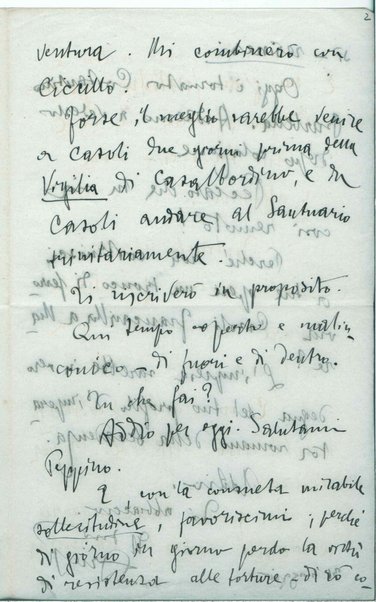 2
ventura. Mi combinerò con
Ciccillo
forse, il meglio sarebbe venire
a Casoli due giorni prima della
Vigilia di Casalbordino, e da
Casoli andare al Santuario
unitariamente.
Ti scriverò in proposito.
Qui tempo aspetto e malin-
conico – di fuori e di dentro.
Tu che fai?
Addio per oggi. Salutami
Peppino.
E con la consueta mirabile
sollecitudine, favoriscimi; perché
di giorno in giorno perdo la
di resistenza alle torture